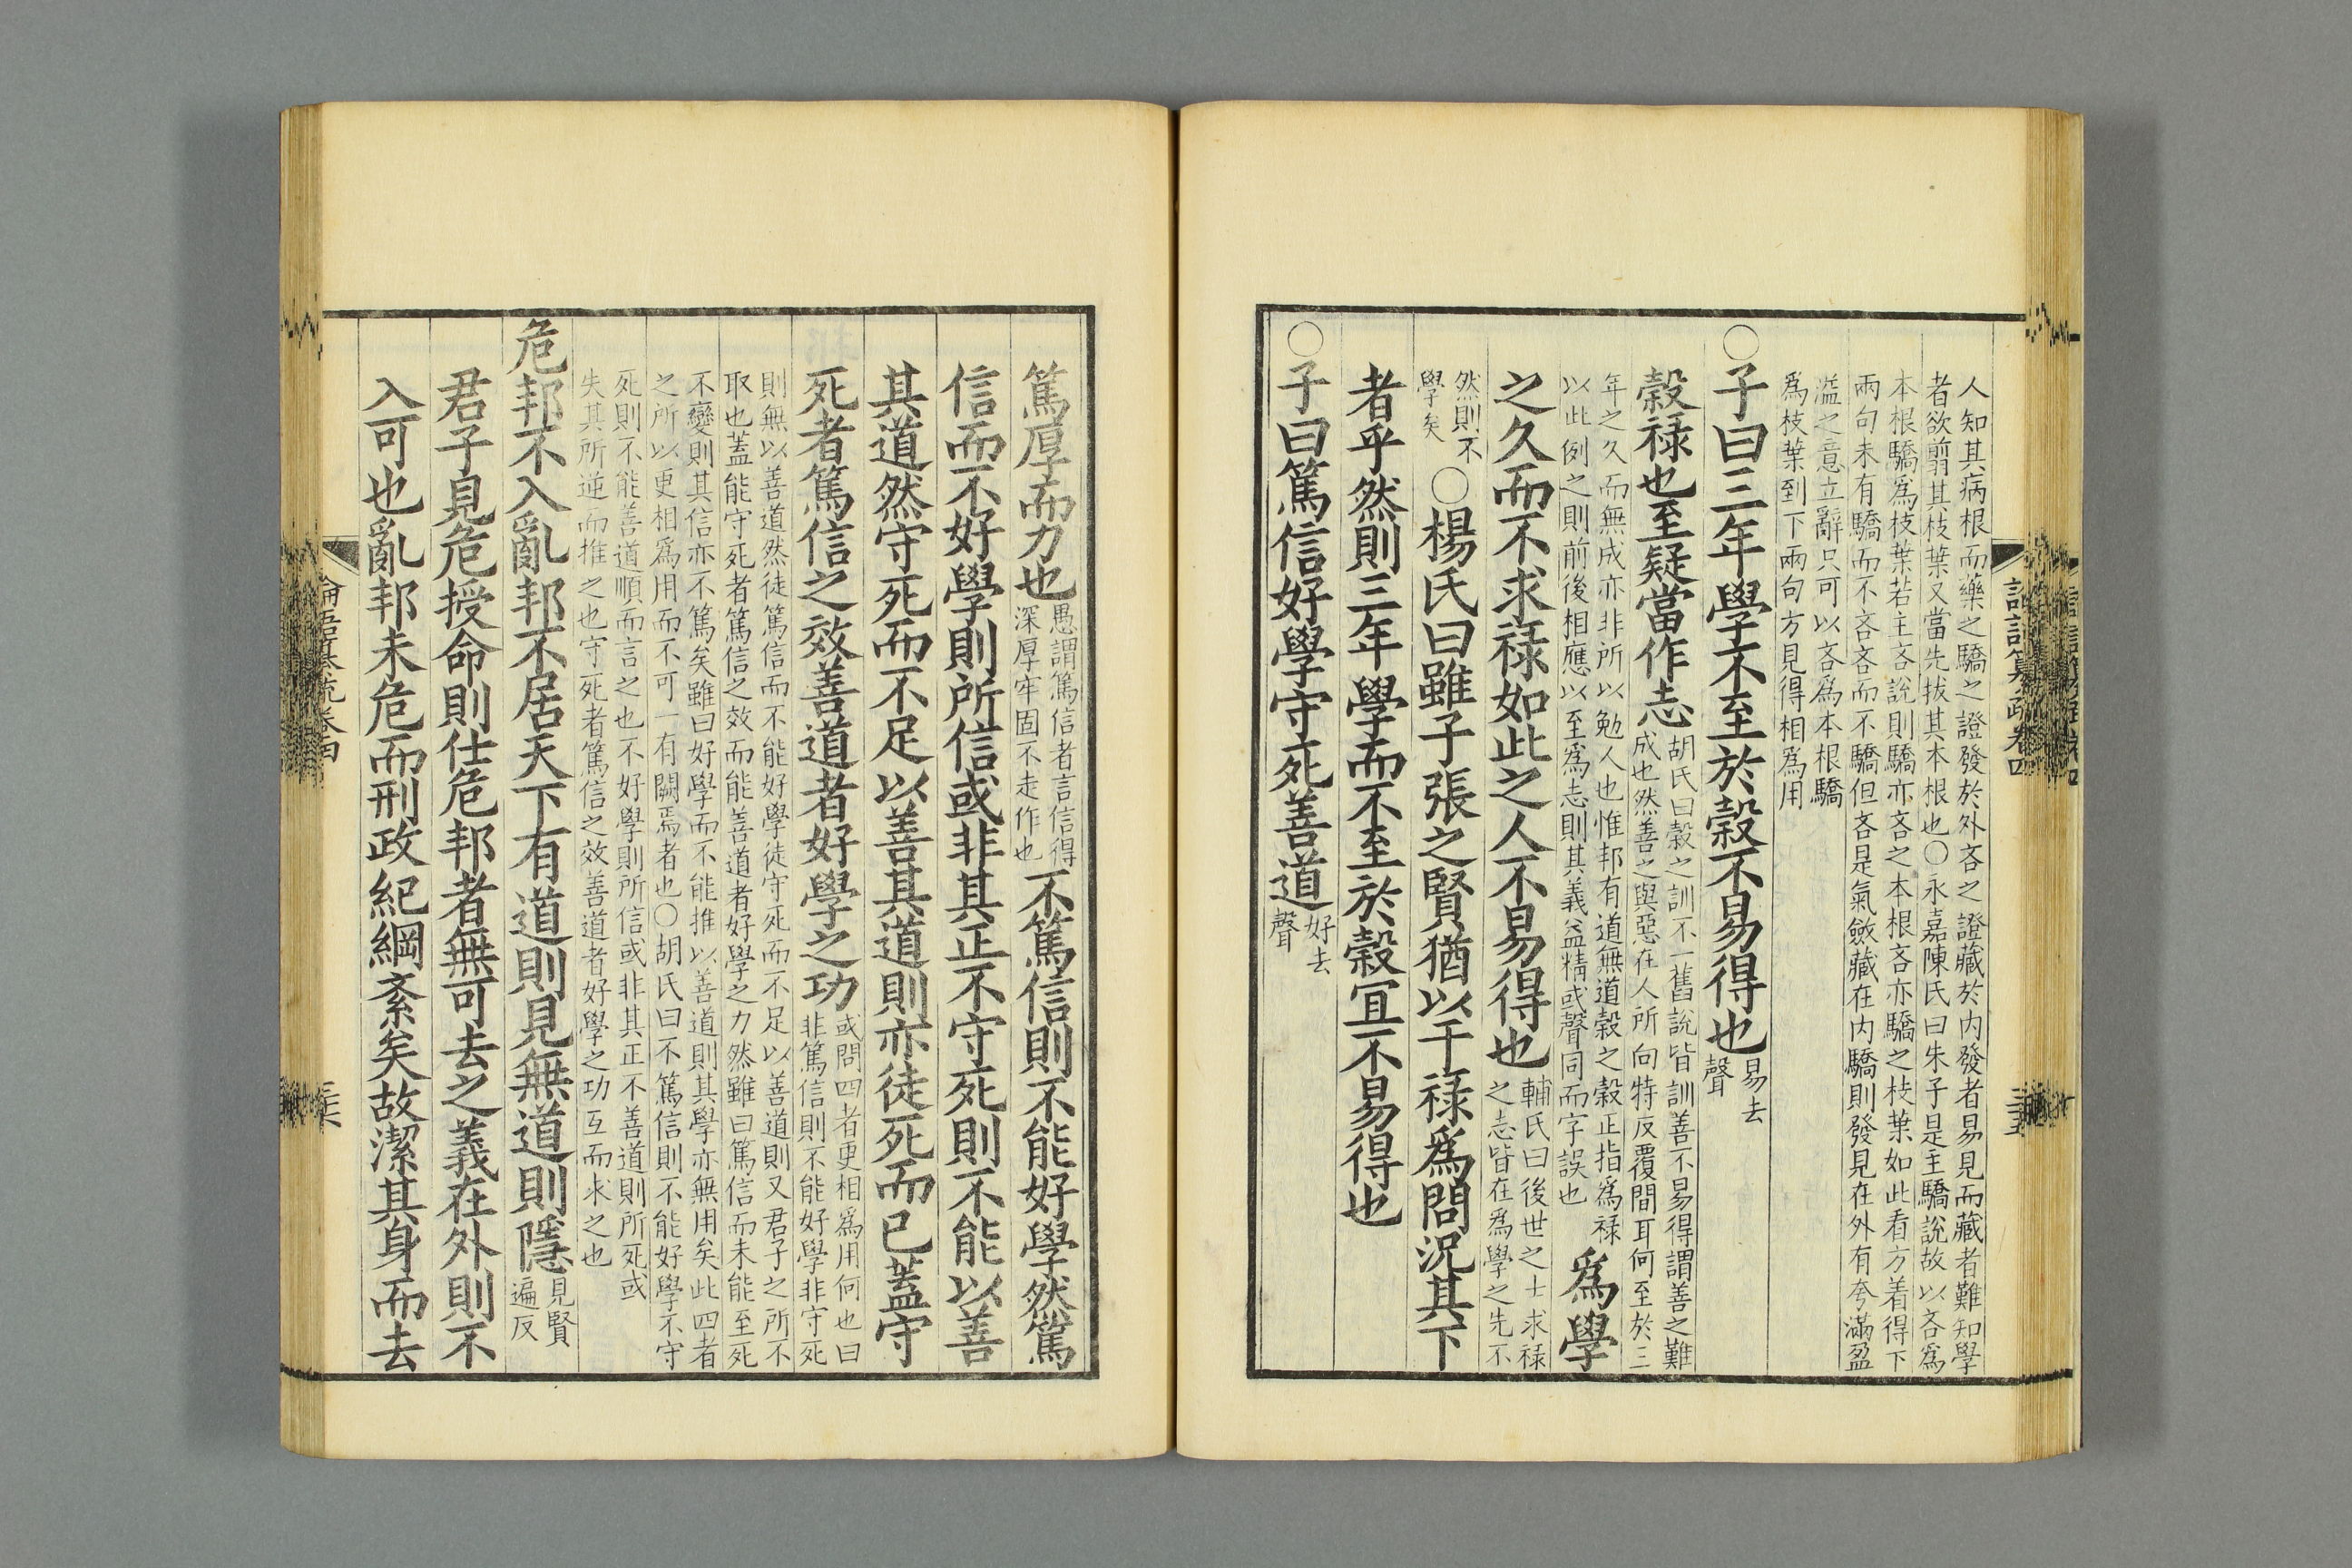 人知其病根而藥之驕之證發於外吝之證藏於内發者易見而藏者難知學
者欲翦其枝葉又當先拔其本根也〇永嘉陳氏曰朱子是主驕說故以吝爲
本根驕爲枝葉若主吝說則驕亦吝之本根吝亦驕之枝葉如此看方着得下
兩句未有驕而不吝吝而不驕但吝是氣斂藏在内驕則發見在外有夸滿盈
溢之意立辭只可以吝爲本根驕
爲枝葉到下兩句方見得相爲用
〇子曰三年學不至於穀不易得也
易去
聲
穀祿也至疑當作志
胡氏曰穀之訓不一舊說皆訓善不易得謂善之難
成也然善之與惡在人所向特反覆間耳何至於三
年之久而無成亦非所以勉人也惟邦有道無道穀之穀正指爲祿
以此例之則前後相應以至爲志則其義益精或聲同而字誤也
爲學
之久而不求祿如此之人不易得也
輔氏曰後世之士求祿
之志皆在爲學之先不
然則不
學矣
〇楊氏曰雖子張之賢猶以干祿爲問況其下
者乎然則三年學而不至於穀宜不易得也
〇子曰篤信好學守死善道
好去
聲
篤厚而力也
愚謂篤信者言信得
深厚牢固不走作也
不篤信則不能好學然篤
信而不好學則所信或非其正不守死則不能以善
其道然守死而不足以善其道則亦徒死而已蓋守
死者篤信之效善道者好學之功
或問四者更相爲用何也曰
非篤信則不能好學非守死
則無以善道然徒篤信而不能好學徒守死而不足以善道則又君子之所不
取也蓋能守死者篤信之效而能善道者好學之力然雖曰篤信而未能至死
不變則其信亦不篤矣雖曰好學而不能推以善道則其學亦無用矣此四者
之所以更相爲用而不可一有闕焉者也〇胡氏曰不篤信則不能好學不守
死則不能善道順而言之也不好學則所信或非其正不善道則所死或
失其所逆而推之也守死者篤信之效善道者好學之功互而求之也
危邦不入亂邦不居天下有道則見無道則隱
見賢
遍反
君子見危授命則仕危邦者無可去之義在外則不
入可也亂邦未危而刑政紀綱紊矣故潔其身而去